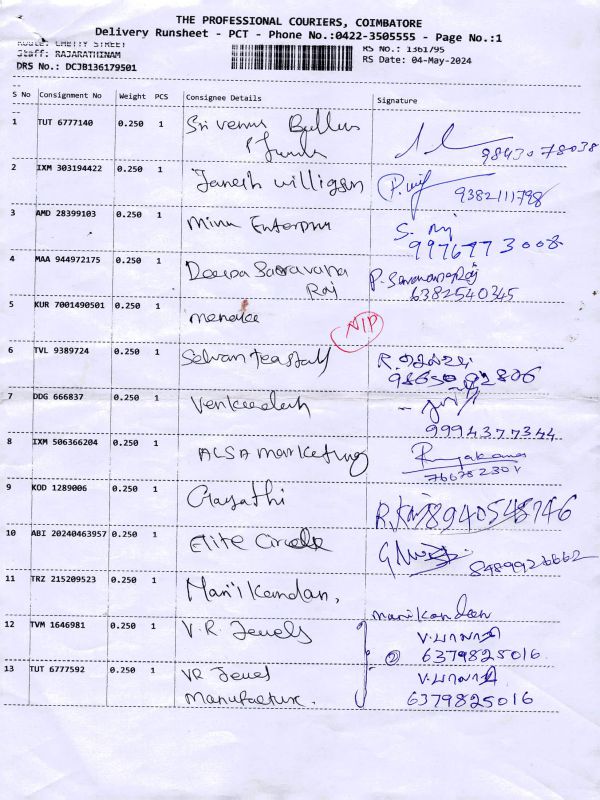 THE PROFESSIONAL COURIERS, COIMBATORE
Delivery Runsheet - PCT - Phone No.:0422-3505555 - Page No.:1
Route: CHETTY STREET
Staff: RAJARATHINAM
RS No.: 1361795
DRS No.: DCJB136179501
RS Date: 04-May-2024
S No Consignment No Weight PCS Consignee Details Signature
1 TUT 6777140 0.250 1 Sri venus
98430 78038
2 IXM 303194422 0.250 1 Janesh williGsm
9382111798
3 AMD 28399103 0.250 1 Minu Enterprus
997677 3008
4 MAA 944972175 0.250 1 Deepa Saravana
Raj
P. Saravanaraj
6382540345
5 KUR 7001490501 0.250 1 menaka
NIP
6 TVL 9389724 0.250 1 Selvan teastall
98650 92806
7 DDG 666837 0.250 1 Venkatesh
9994377344
8 IXM 506366204 0.250 1 ALSA marketing
766782304
9 KOD 1289006 0.250 1 Gayathi
8940548746
10 ABI 20240463957 0.250 1 Elite Circle
8489926662
11 TRZ 215209523 0.250 1 Manikandan,
manikandan
12 TVM 1646981 0.250 1 V.R. Jewels
V.பாலாஜி
② 6379825016
13 TUT 6777592 0.250 1 VR Jewel
Manufacture.
V.பாலாஜி
6379825016